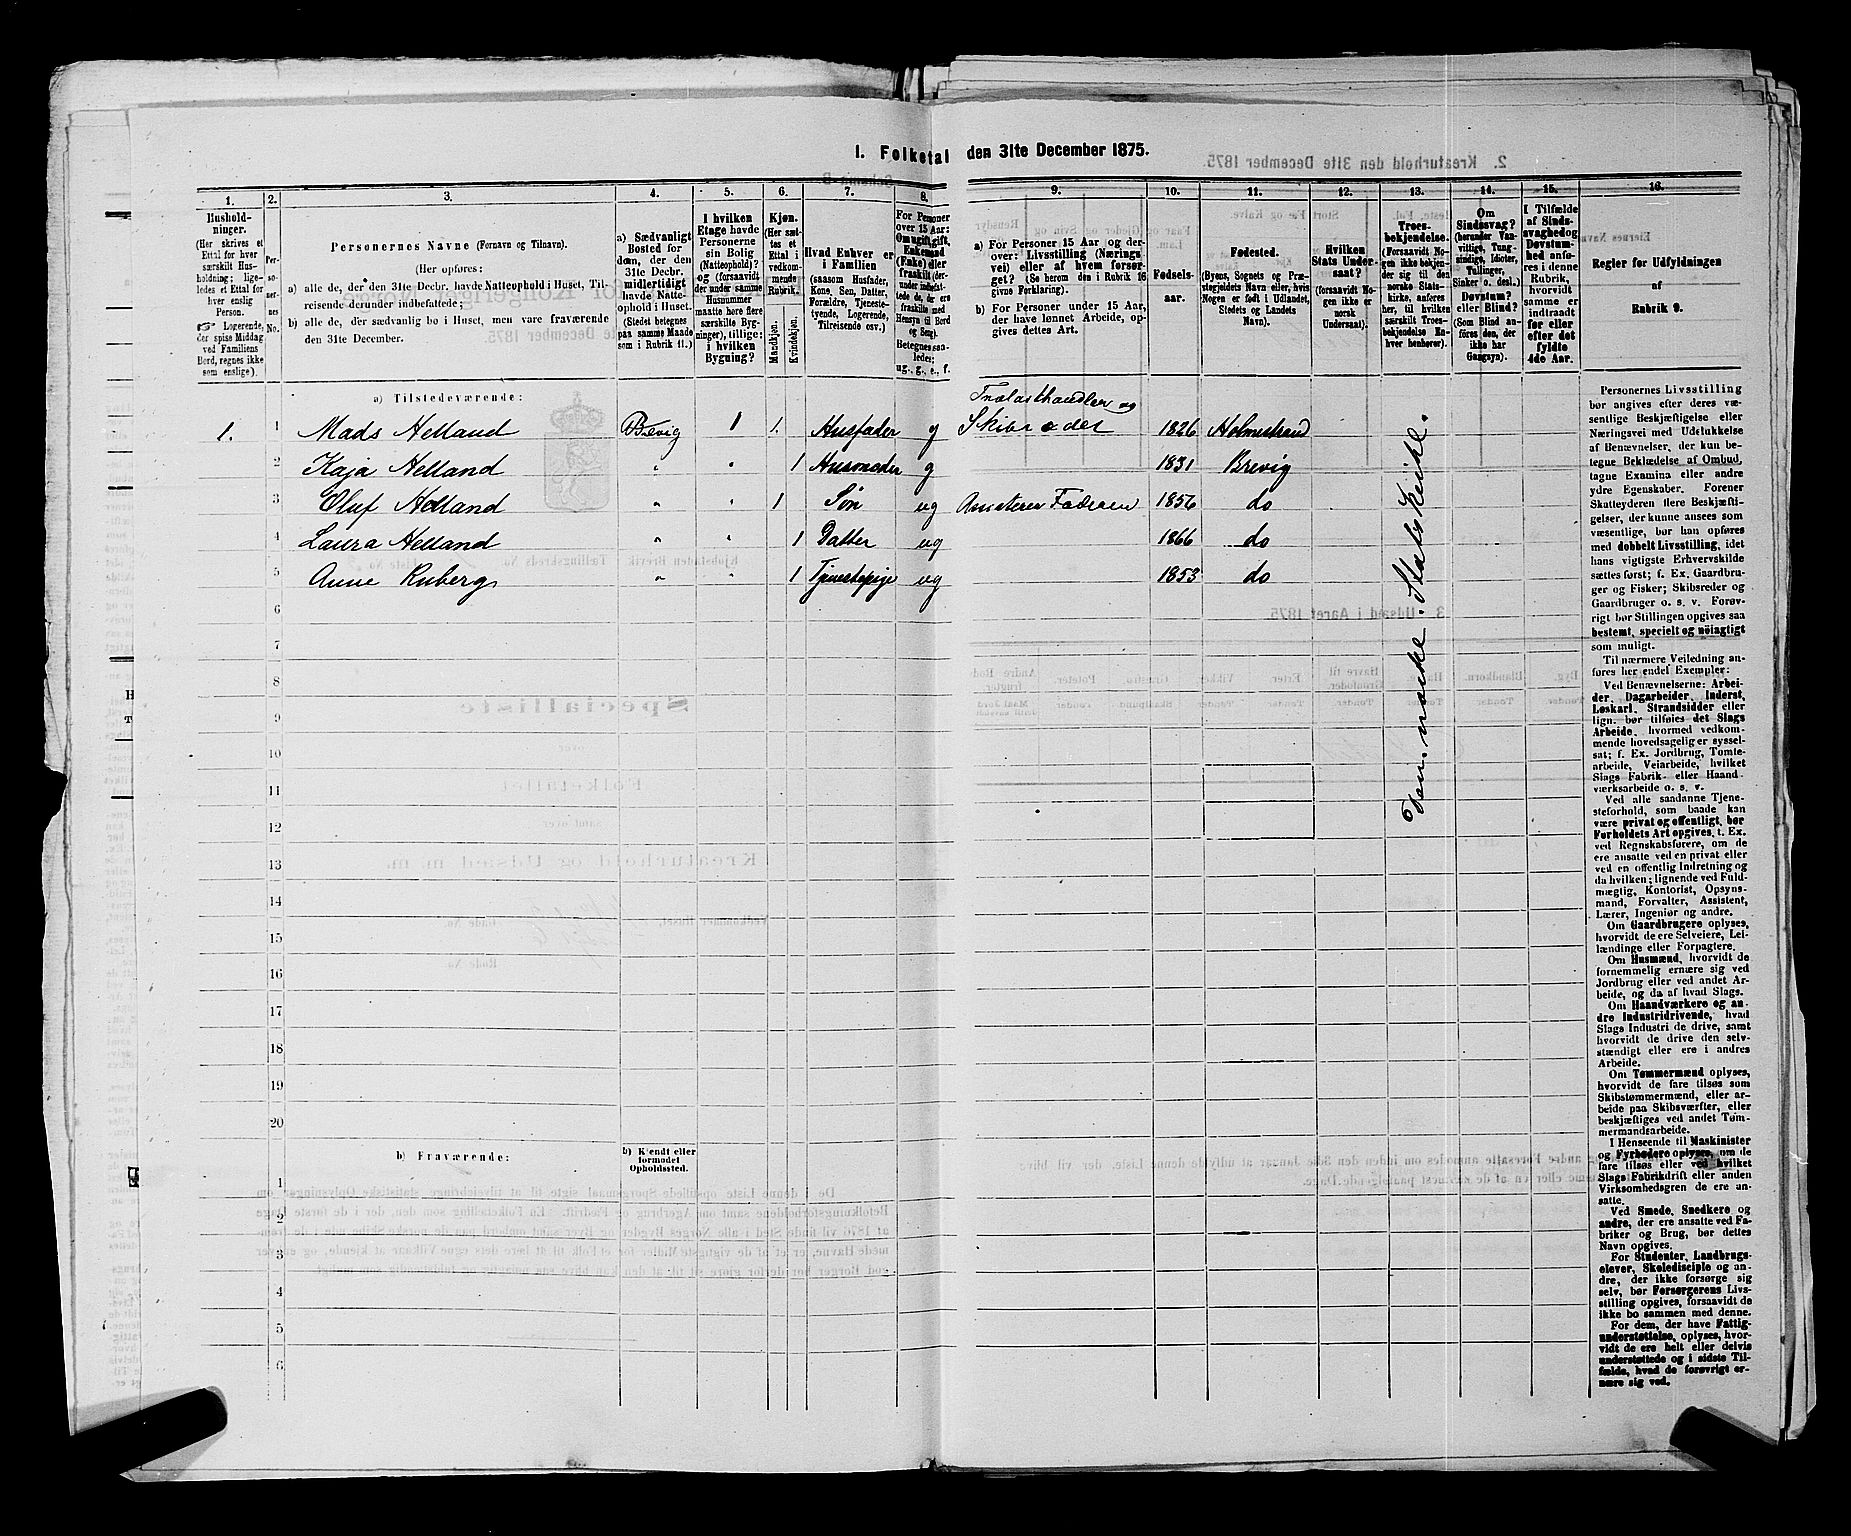 1. Folketal den 31te December 1875.
1. 2. 3. 4. 5. 6. 7. 8. 9. 10. 11. 12. 13. 14. 15. 16.
Hushold-
ninger.
(Her skrives et
Ettal for hver
særskilt Hus-
holdning; lige-
ledes et Ettal for
hver enslig
Person.
☞ Logerende,
der spise Middag
ved Familiens
Bord, regnes ikke
som enslige).
Per-
so-
ner-
nes
No.
Personernes Navne (Fornavn og Tilnavn).
(Her opføres:
a) alle de, der den 31te Decbr. havde Natteophold i Huset, Til-
reisende derunder indbefattede;
b) alle de, der sædvanlig bo i Huset, men vare fraværende
den 31te December.
a) Sædvanligt
Bosted for
dem, der den
31te Decbr.
midlertidigt
havde Natte-
ophold i Huset.
(Stedet betegnes
paa samme Maade
som i Rubrik 11.)
I hvilken
Etage havde
Personerne
sin Bolig
(Natteophold)?
og (forsaavidt
der under samme
Husnummer
maatte høre flere
særskilte Byg-
ninger), tillige:
i hvilken
Bygning?
Kjøn.
(Her sæt-
tes et
Ettal i
vedkom-
mende
Rubrik.)
Mandkjøn.
Kvindekjøn.
Hvad Enhver er
i Familien
(saasom Husfader,
Kone, Søn, Datter,
Forældre, Tjeneste-
tyende, Logerende,
Tilreisende osv.)
For Personer
over 15 Aar:
Om ugift, gift,
Enkemand
(Enke) eller
fraskilt (der-
under indbefat-
tede de, der ere
fraskilte med
Hensyn til Bord
og Seng).
Betegnes saa-
ledes:
ug., g., e., f.
a) For Personer 15 Aar og der-
over: Livsstilling (Nærings-
vei) eller af hvem forsør-
get? (Se herom den i Rubrik 16
givne Forklaring).
b) For Personer under 15 Aar,
der have lønnet Arbeide, op-
gives dettes Art.
Fødsels-
aar.
Fødested.
(Byens, Sognets og Præ-
stegjeldets Navn eller, hvis
Nogen er født i Udlandet,
Stedets og Landets
Navn).
Hvilken
Stats Under-
saat?
(forsaavidt No-
gen ikke er
norsk
Undersaat).
Troes-
bekjendelse.
(Forsaavidt No-
gen ikke bekjen-
der sig til den
norske Stats-
kirke, anføres
her, til hvilken
særskilt Troes-
bekjendelse En-
hver henhører).
Om
Sindssvag?
(herunder Van-
vittige, Tung-
sindige, Idioter,
Tullinger,
Sinker o. desl.)
Døvstum?
eller Blind?
(Som Blind an-
føres den, der
ikke har
Gangsyn).
I Tilfælde
af Sinds-
svaghed og
Døvstum-
hed anfø-
res i denne
Rubrik,
hvorvidt
samme er
indtraadt
før eller
efter det
fyldte
4de Aar.
Regler for Udfyldningen
af
Rubrik 9.
a) Tilstedeværende:
Trælasthandler og
1. 1 Mads Helland Brevig 1 1. Husfader g Skibsreder 1826 Holmestrand
2 Kaja Helland " " 1 Husmoder g 1831 Brevig
3 Oluf Helland " " 1 Søn ug Assisterer Faderen 1856 do
4 Laura Helland " " 1 Datter ug 1866 do
5 Anne Ruberg " " 1 Tjenestepige ug 1853 do
Statskirke.
6
7
8
9
10
11
12
13
14
15
16
17
18
19
20
b) Fraværende:
b) Kjendt eller
formodet
Opholdssted.
1
2
3
4
5
6
Personernes Livsstilling
bør angives efter deres væ-
sentlige Beskjæftigelse eller
Næringsvei med Udelukkelse
af Benævnelser, der kun be-
tegne Beklædelse af Ombud,
tagne Examina eller andre
ydre Egenskaber. Forener
Skatteyderen flere Beskjæfti-
gelser, der kunne ansees som
væsentlige, bør han opføres
med dobbelt Livsstilling, idet
hans vigtigste Erhvervskilde
sættes først; f. Ex. Gaardbru-
ger og Fisker; Skibsreder og
Gaardbruger o. s. v. Forøv-
rigt bør Stillingen opgives saa
bestemt, specielt og nøiagtigt
som muligt.
Til nærmere Veiledning an-
føres her endel Exempler:
Ved Benævnelserne: Arbei-
der, Dagarbeider, Inderst,
Løskarl, Strandsidder eller
lign. bør tilføies det Slags
Arbeide, hvormed vedkom-
mende hovedsagelig er syssel-
sat; f. Ex. Jordbrug, Tomte-
arbeide, Veiarbeide, hvilket
Slags Fabrik- eller Haand-
værksarbeide o. s. v.
Ved alle saadanne Tjene-
steforhold, som baade kan
være privat og offentligt, bør
Forholdets Art opgives, t. Ex.
ved Regnskabsførere, om de
ere ansatte ved en privat eller
ved en offentlig Indretning og
da hvilken; lignende ved Fuld-
mægtig, Kontorist, Opsyns-
mand, Forvalter, Assistent,
Lærer, Ingeniør og andre.
Om Gaardbrugere oplyses,
hvorvidt de ere Selveiere, Lei-
lændinge eller Forpagtere.
Om Husmænd, hvorvidt de
fornemmelig ernære sig ved
Jordbrug eller ved andet Ar-
beide, og da af hvad Slags.
Om Haandværkere og an-
dre Industridrivende, hvad
Slags Industri de drive, samt
hvorvidt de drive den selv-
stændigt eller ere i andres
Arbeide.
Om Tømmermænd oplyses,
hvorvidt de fare tilsøs som
Skibstømmermænd, eller ar-
beide paa Skibsværfter, eller
beskjæftiges ved andet Tøm-
mermandsarbeide.
I Henseende til Maskinister
og Fyrbødere oplyses, om de
fare tilsøs eller ved hvilket
Slags Fabrikdrift eller anden
Virksomhedsgren de ere an-
satte.
Ved Smede, Snedkere og
andre, der ere ansatte ved Fa-
briker og Brug, bør dettes
Navn opgives.
For Studenter, Landbrugs-
elever, Skoledisciple og an-
dre, der ikke forsørge sig
selv, bør Forsørgerens Livs-
stilling opgives, forsaavidt de
ikke bo sammen med denne.
For dem, der have Fattig-
understøttelse, oplyses, hvor-
vidt de ere helt eller delvis
understøttede og i sidste Til-
fælde, hvad de forøvrigt er-
nære sig ved.